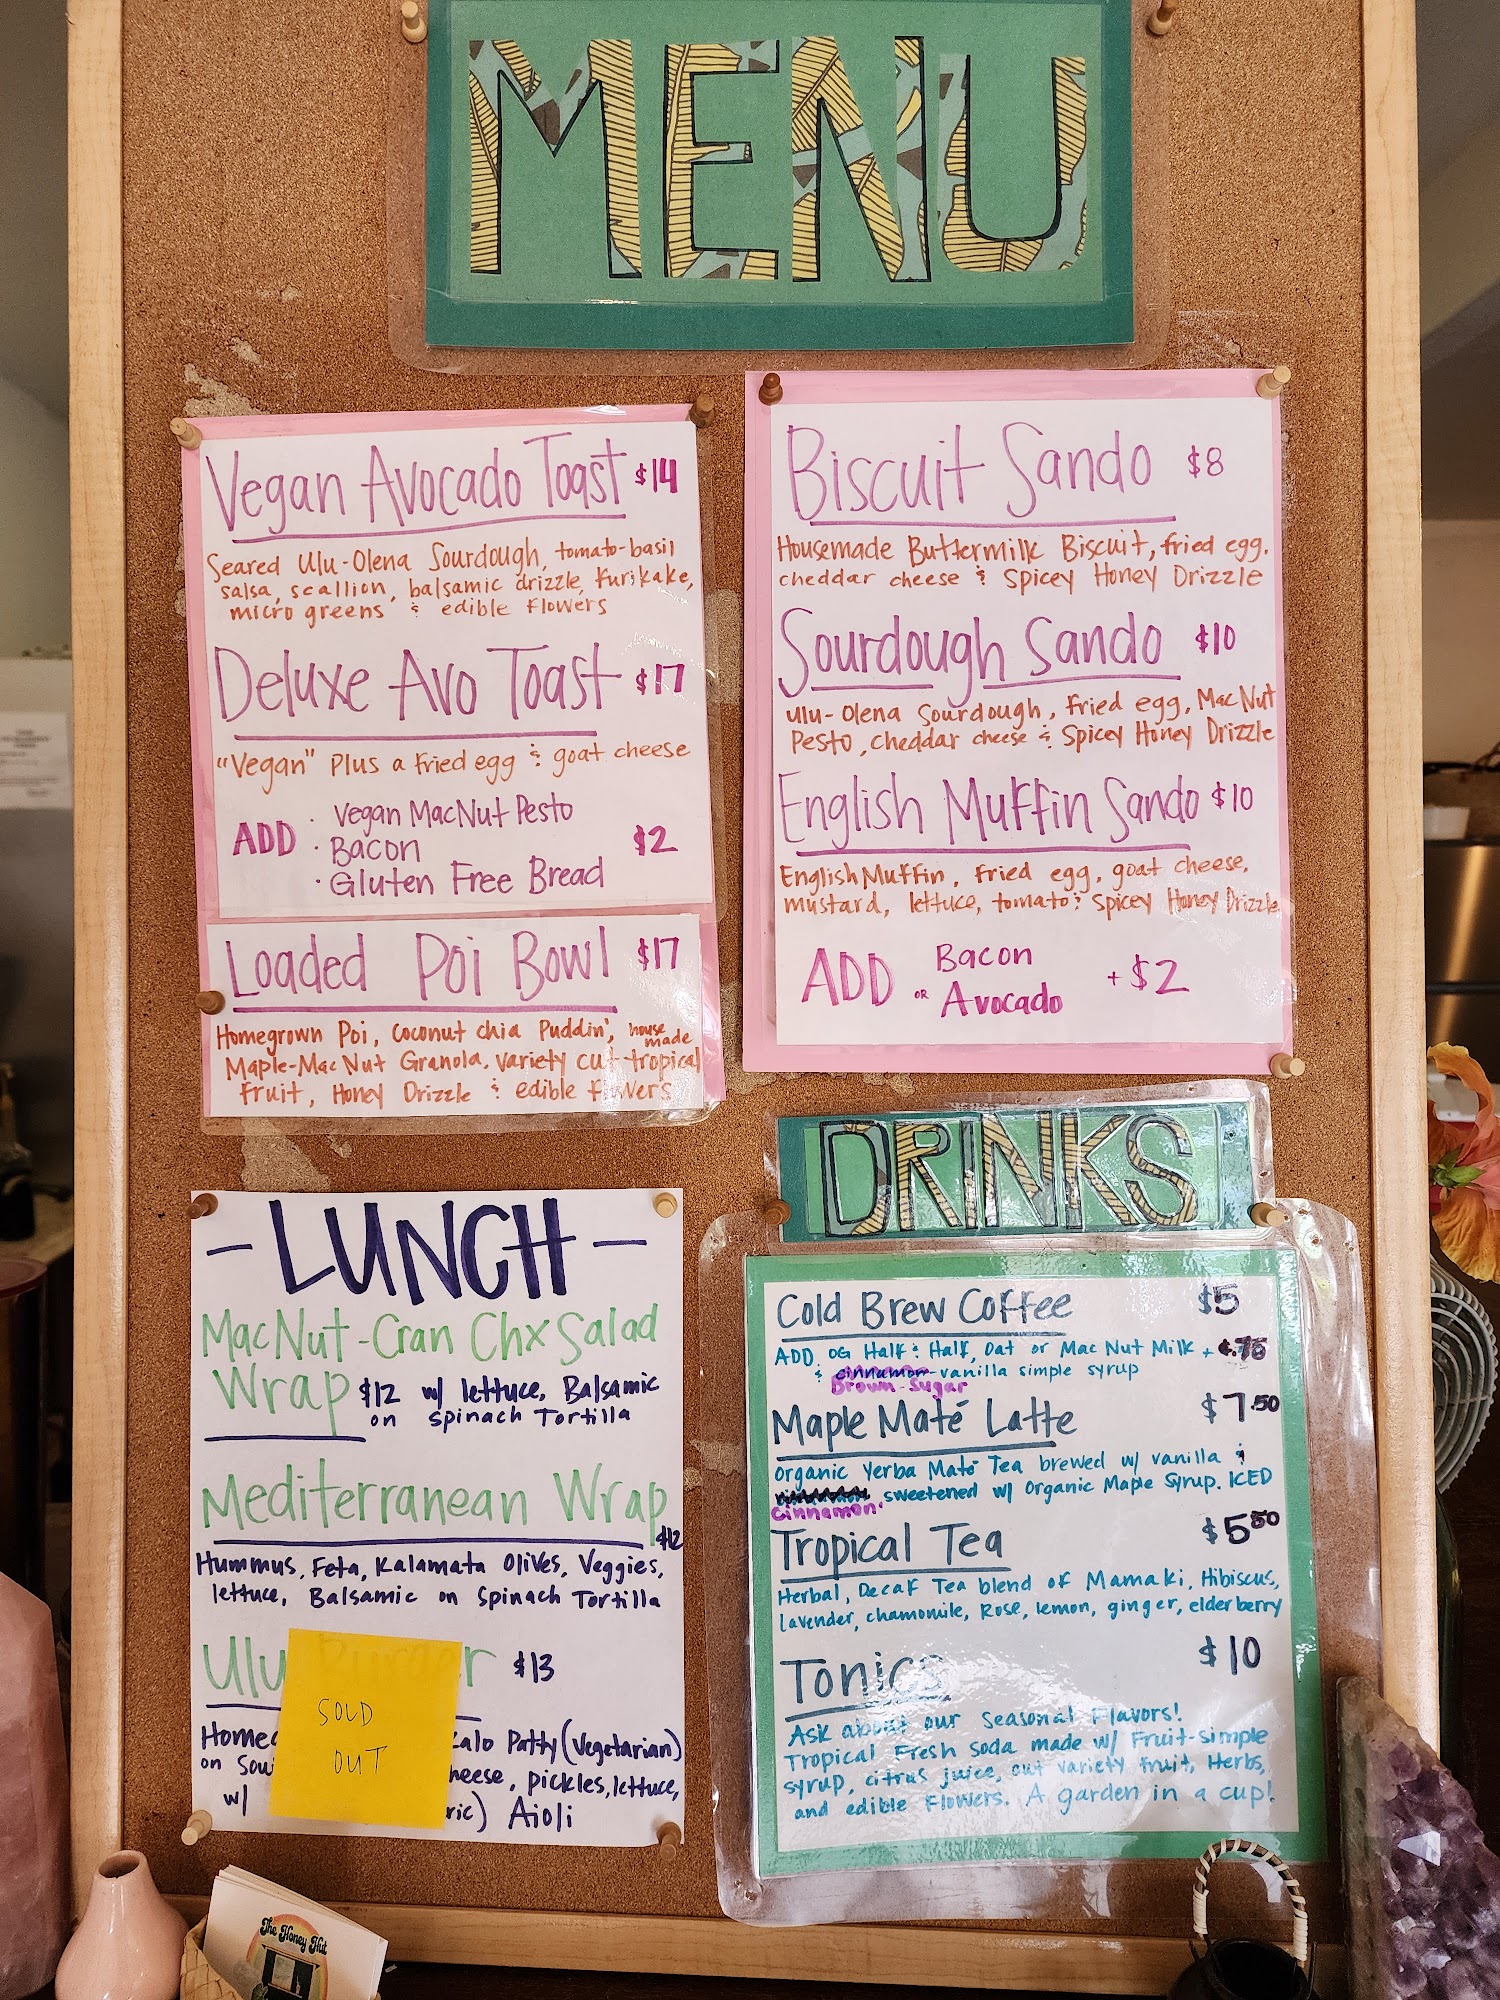 MENU
Vegan Avocado Toast $14
Seared Ulu-Olena Sourdough, tomato-basil
salsa, scallion, balsamic drizzle, furikake,
micro greens & edible flowers
Deluxe Avo Toast $17
"Vegan" Plus a fried egg & goat cheese
ADD
· Vegan MacNut Pesto
· Bacon
· Gluten Free Bread
$2
Loaded Poi Bowl $17
Homegrown Poi, coconut chia Puddin', house made
Maple-Mac Nut Granola, variety cut tropical
fruit, Honey Drizzle & edible flowers
Biscuit Sando $8
Housemade Buttermilk Biscuit, fried egg,
cheddar cheese & Spicey Honey Drizzle
Sourdough Sando $10
Ulu-Olena Sourdough, fried egg, Mac Nut
Pesto, cheddar cheese & Spicey Honey Drizzle
English Muffin Sando $10
English Muffin, fried egg, goat cheese,
mustard, lettuce, tomato & Spicey Honey Drizzle
ADD Bacon or Avocado +$2
-LUNCH-
MacNut-Cran Chx Salad
Wrap $12 w/ lettuce, Balsamic
on spinach Tortilla
Mediterranean Wrap
$12
Hummus, Feta, Kalamata Olives, Veggies,
lettuce, Balsamic on Spinach Tortilla
Ulu Burger $13
SOLD
OUT
Kalo Patty (Vegetarian)
on cheese, pickles, lettuce,
w/ Aioli
DRINKS
Cold Brew Coffee $5
ADD OG Half & Half, Oat or Mac Nut Milk + .75
& cinnamon-vanilla simple syrup
Brown-Sugar
Maple Maté Latte $7.50
Organic Yerba Maté Tea brewed w/ vanilla &
sweetened w/ Organic Maple Syrup. ICED
cinnamon.
Tropical Tea $5.50
Herbal, Decaf Tea blend of Mamaki, Hibiscus,
lavender, chamomile, Rose, lemon, ginger, elderberry
Tonics $10
Ask about our seasonal flavors!
Tropical Fresh soda made w/ Fruit-simple
syrup, citrus juice, cut variety fruit, Herbs,
and edible flowers. A garden in a cup!
The Honey Hut